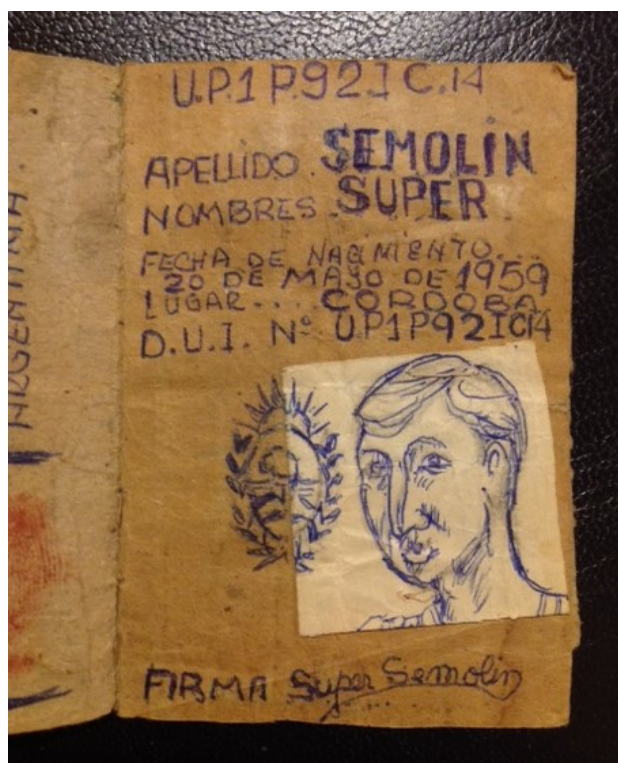 U.P.1 P.92I C.14
APELLIDO. SEMOLIN
NOMBRES. SUPER.
FECHA DE NACIMIENTO...
20 DE MAYO DE 1959
LUGAR... CORDOBA.
D.U.I. Nº U.P1P92IC14
FIRMA Super Semolin
ARGENTINA.